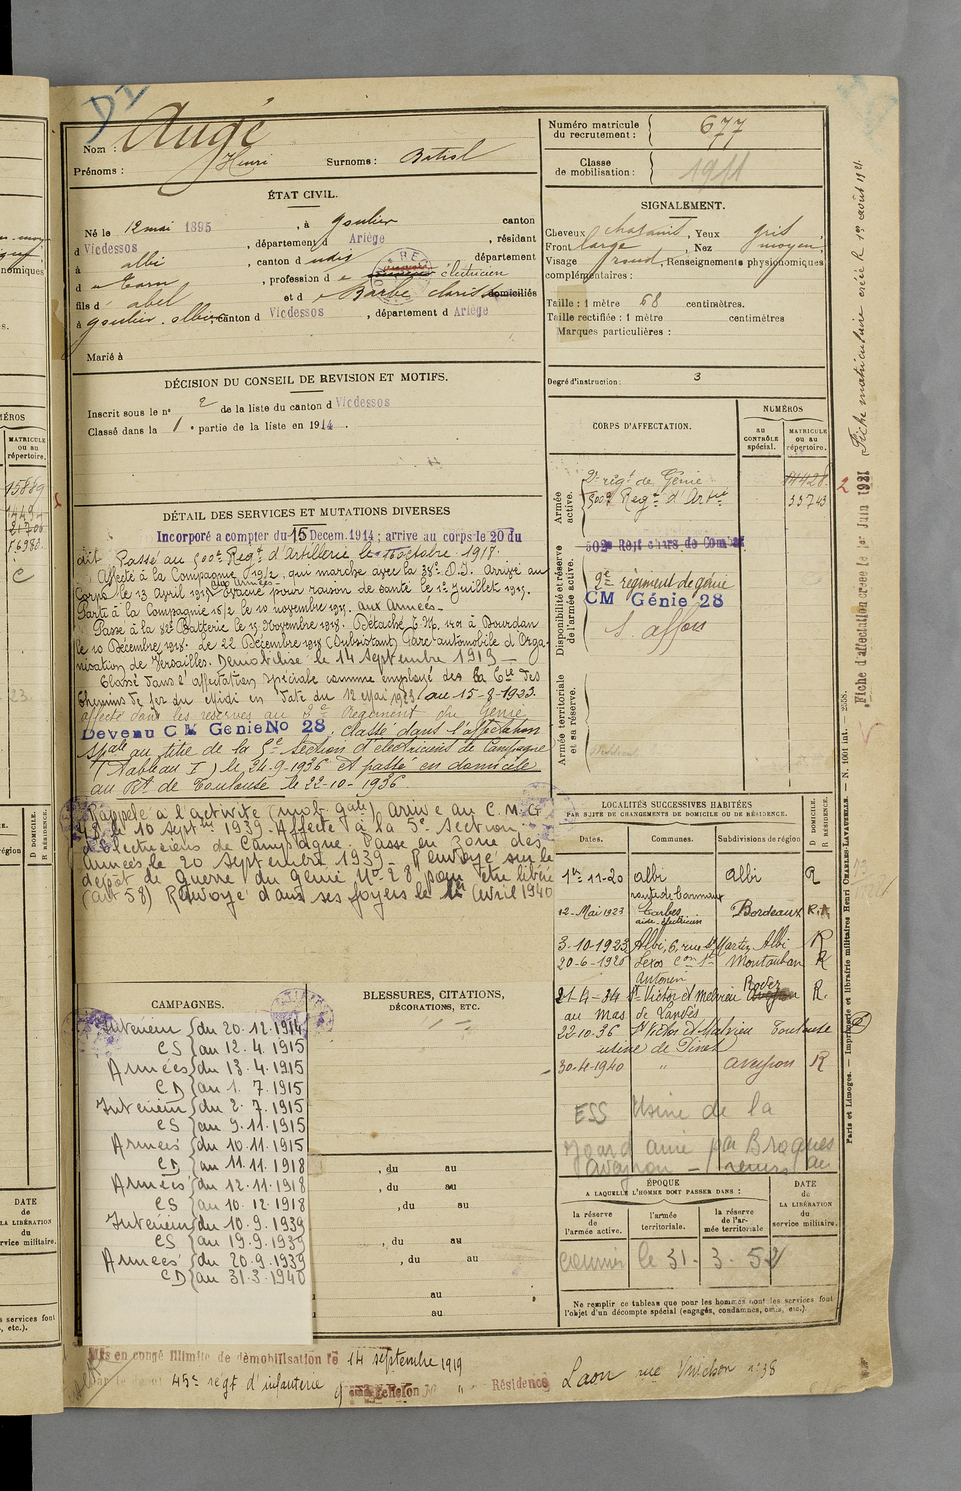 Nom : Augé
Prénoms : Henri
Surnoms :
ÉTAT CIVIL.
Né le 12 mai 1895, à Goulier canton
d Vicdessos, département d Ariège, résidant
à albi, canton d département
d u Tarn, profession d électricien
fils d' abel et d e Barbe domiciliés
à Goulier, canton d Vicdessos, département d Ariège
Marié à
DÉCISION DU CONSEIL DE REVISION ET MOTIFS.
Inscrit sous le n° 2 de la liste du canton d Vicdessos
Classé dans la 1e partie de la liste en 1914.
DÉTAIL DES SERVICES ET MUTATIONS DIVERSES
Incorporé a compter du 15 Decem. 1914; arrive au corps le 20 du
dit. Passé au 500e Regt d'Artillerie le octobre 1918.
Affecté à la Compagnie 19/2, qui marche avec la D.I. Arrivé au
Corps le 13 Avril 1915 aux Armées Evacué pour raison de santé le 1er Juillet 1915.
Parti à la Compagnie 16/2 le 10 novembre 1915. aux Armées-
Passe à la Batterie le Novembre 1918. Détaché à Bourdan
le 10 Décembre 1918. le 22 Décembre 1918 (Subsistant) Parc automobile d'Orga-
nisation de Versailles. Démobilisé le 14 Septembre 1919 —
Classé dans l'affectation spéciale comme employé des la Cie des
Chemins de fer du Midi en date du 12 Mai 1923 (au 15-8-1933.
affecté dans les réserves au 2e Régiment du Génie
Devenu C M Genie No 28, classé dans l'affectation
spale au titre de la 5e Section d'électriciens de Campagne
(Tableau I) le 24.9.1936 et passé en domicile
au Rt de Toulouse le 22-10-1936.
Rappelé à l'activité (mob. gale) Arrivé au C.M.G
28 le 10 Septbre 1939. Affecté à la 5e Section
d'Electriciens de Campagne. Passe en Zone des
Armées le 20 Septembre 1939 - Renvoyé sur le
dépôt de Guerre du Génie No 28 pour être libéré
(art 58) Renvoyé dans ses foyers le 1er Avril 1940
CAMPAGNES.
Intérieur {du 20.12.1914
CS {au 12.4.1915
Armées {du 13.4.1915
CD {au 1.7.1915
Intérieur {du 2.7.1915
CS {au 9.11.1915
Armées {du 10.11.1915
CD {au 11.11.1918
Armées {du 12.11.1918
CS {au 10.12.1918
Intérieur {du 10.9.1939
CS {au 19.9.1939
Armées {du 20.9.1939
CD {au 31.3.1940
BLESSURES, CITATIONS,
DÉCORATIONS, ETC.
, du au
, du au
, du au
, du au
, du au
au
au
Mis en congé illimité de démobilisation le 14 septembre 1919
45e regt d'infanterie échelon Résidence Laon rue n° 38
Numéro matricule du recrutement : 677
Classe de mobilisation : 1911
SIGNALEMENT.
Cheveux chatains, Yeux gris
Front large, Nez moyen;
Visage rond, Renseignements physionomiques
complémentaires :
Taille : 1 mètre 68 centimètres.
Taille rectifiée : 1 mètre centimètres
Marques particulières :
Degré d'instruction : 3
CORPS D'AFFECTATION.
NUMÉROS
AU CONTRÔLE spécial.
MATRICULE OU AU répertoire.
Armée active.
2e régt de Génie
500e Regt d'Artie 33743
Disponibilité et réserve de l'armée active.
502e Regt chars de Combat
2e régiment de génie
CM Génie 28
S. affon
Armée territoriale et sa réserve.
LOCALITÉS SUCCESSIVES HABITÉES
PAR SUITE DE CHANGEMENTS DE DOMICILE OU DE RÉSIDENCE.
Dates. Communes. Subdivisions de région D DOMICILE. R RÉSIDENCE.
1er-11-20 albi albi R
route de Carmaux
12-Mai 1923 Tarbes Bordeaux
aide-électricien
3-10-1923 Albi, 6, rue St Martin Albi R
20-6-1925 Lexos Con St Montauban R
Antonin
21-4-34 St Victor et Melvieu Rodez R.
au Mas de
22-10-36 St Victor et Melvieu Toulouse
usine de Pinet
30-4-1940 " aveyron R
ESS Usine de la
Jourdanie par Broquies
aveyron
ÉPOQUE
A LAQUELLE L'HOMME DOIT PASSER DANS :
la réserve de l'armée active.
l'armée territoriale.
la réserve de l'armée territoriale
DATE de LA LIBÉRATION du service militaire.
courrier le 31-3-52
Ne remplir ce tableau que pour les hommes dont les services font
l'objet d'un décompte spécial (engagés, condamnés, omis, etc.).
Fiche matriculaire créée le 1er août 1921
Fiche d'affectation créée le 1er Juin 1921
Paris et Limoges. — Imprimerie et librairie militaires Henri CHARLES-LAVAUZELLE. — N. 1001 int. — 2358.